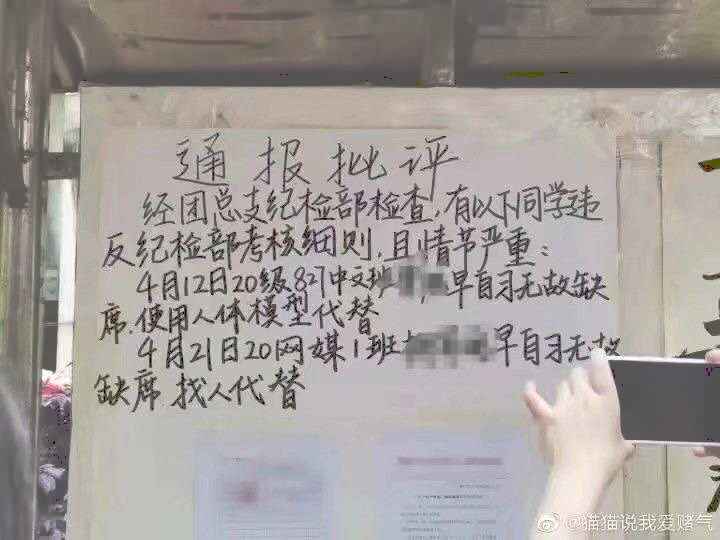 通报批评
经团总支纪检部检查,有以下同学违
反纪检部考核细则,且情节严重:
4月12日20级827中文班 早自习无故缺
席.使用人体模型代替
4月21日20网媒1班 早自习无故
缺席 找人代替
@猫猫说我爱赌气